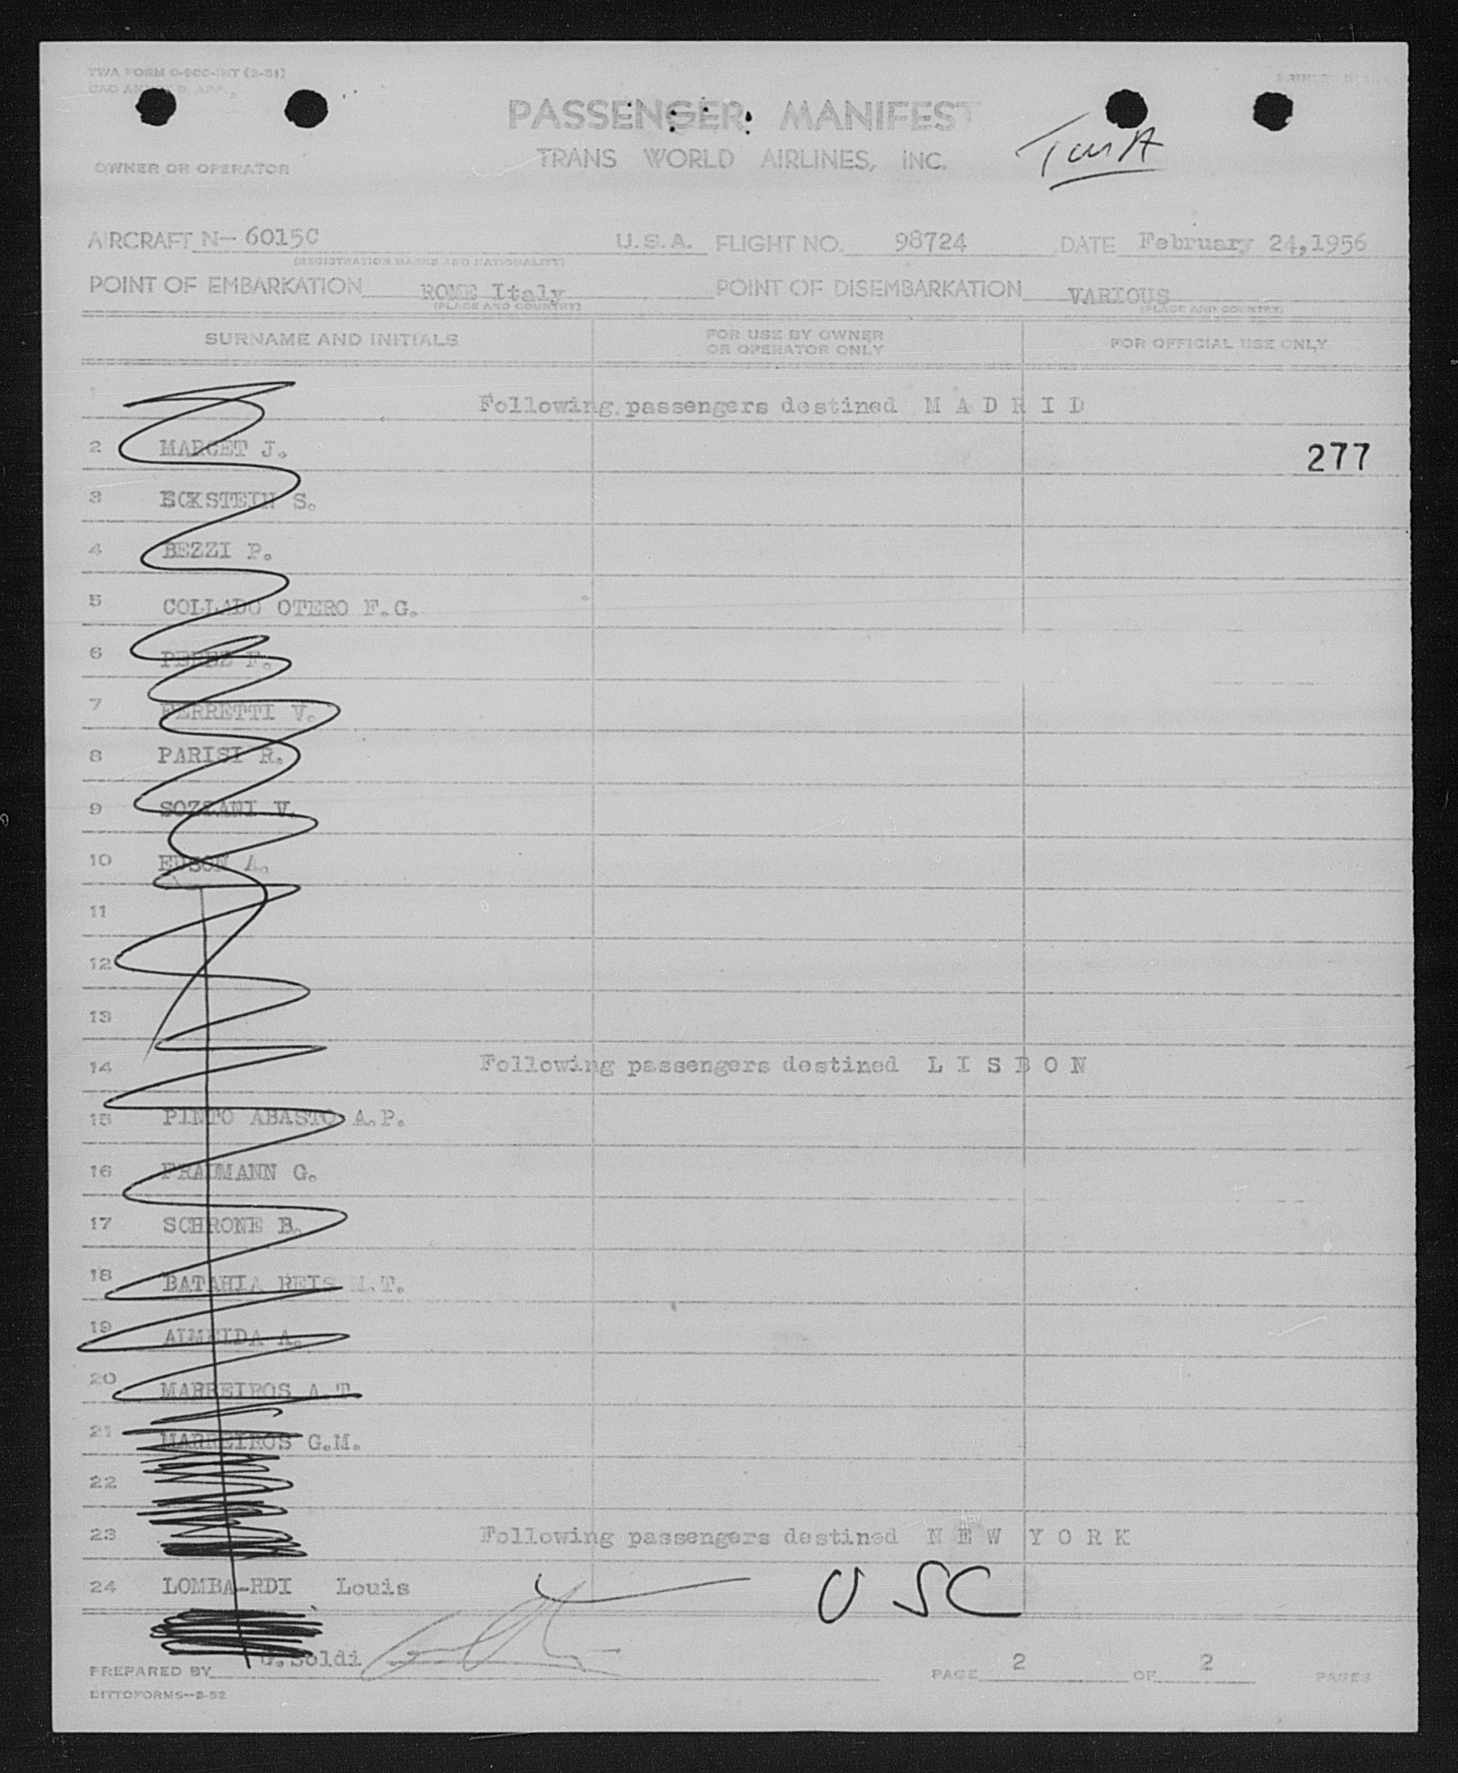 TWA FORM
PASSENGER MANIFEST
TWA
OWNER OR OPERATOR
TRANS WORLD AIRLINES, INC.
AIRCRAFT N- 6015C U.S.A. FLIGHT NO. 98724 DATE February 24,1956
(REGISTRATION MARKS AND NATIONALITY)
POINT OF EMBARKATION ROME Italy POINT OF DISEMBARKATION VARIOUS
(PLACE AND COUNTRY) (PLACE AND COUNTRY)
SURNAME AND INITIALS FOR USE BY OWNER OR OPERATOR ONLY FOR OFFICIAL USE ONLY
1 Following passengers destined M A D R I D
2 MARCET J. 277
3 ECKSTEIN S.
4 BEZZI P.
5 COLLADO OTERO F.G.
6 PEREZ F.
7 FERRETTI V.
8 PARISI R.
9 SOZZANI V.
10 EDSON A.
11
12
13
14 Following passengers destined L I S B O N
15 PINTO ABASTO A.P.
16 FRAUMANN G.
17 SCHRONE B.
18 BATAHIA REIS M.T.
19 ALMEIDA A.
20 MARREIROS A.T.
21 MARREIROS G.M.
22
23 Following passengers destined N E W Y O R K
24 LOMBA-RDI Louis USC
PREPARED BY G. Soldi PAGE 2 OF 2 PAGES
DITTOFORMS--2-52